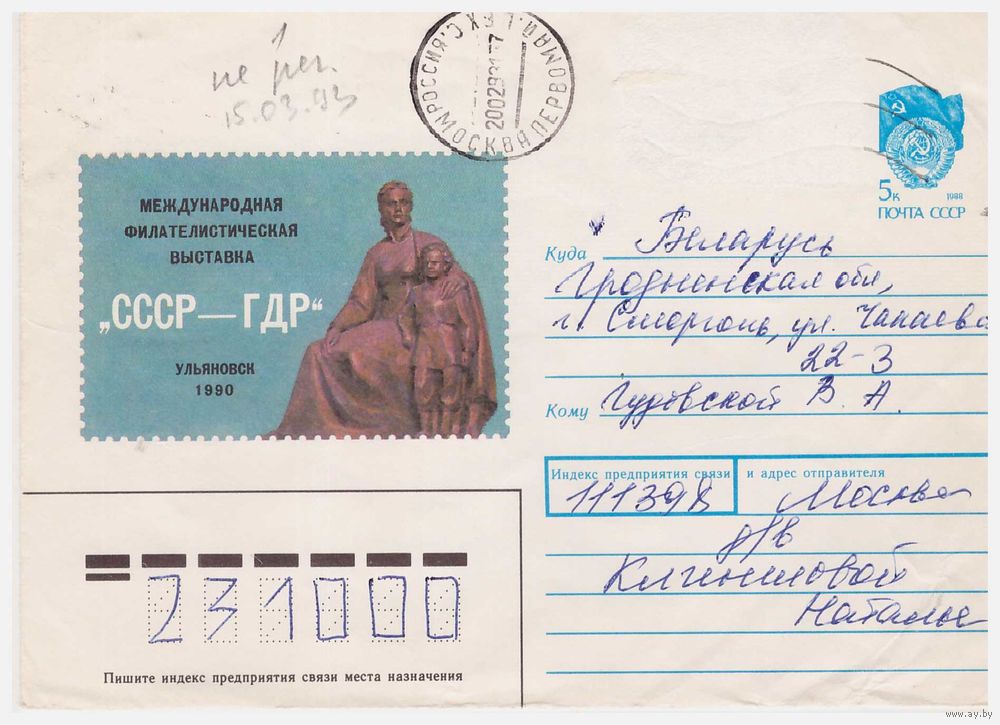 1
не рег.
15.03.93
РОССИЯ
МОСКВА ПЕРВОМАЙ
МЕЖДУНАРОДНАЯ
ФИЛАТЕЛИСТИЧЕСКАЯ
ВЫСТАВКА
„СССР—ГДР“
УЛЬЯНОВСК
1990
5к 1988
ПОЧТА СССР
Куда Беларусь
Гродненская обл,
г. Сморгонь, ул. Чапаева
22-3
Кому Гуревской В. А.
Индекс предприятия связи и адрес отправителя
111398 Москва
д/в
Наталье
231000
Пишите индекс предприятия связи места назначения
www.ay.by